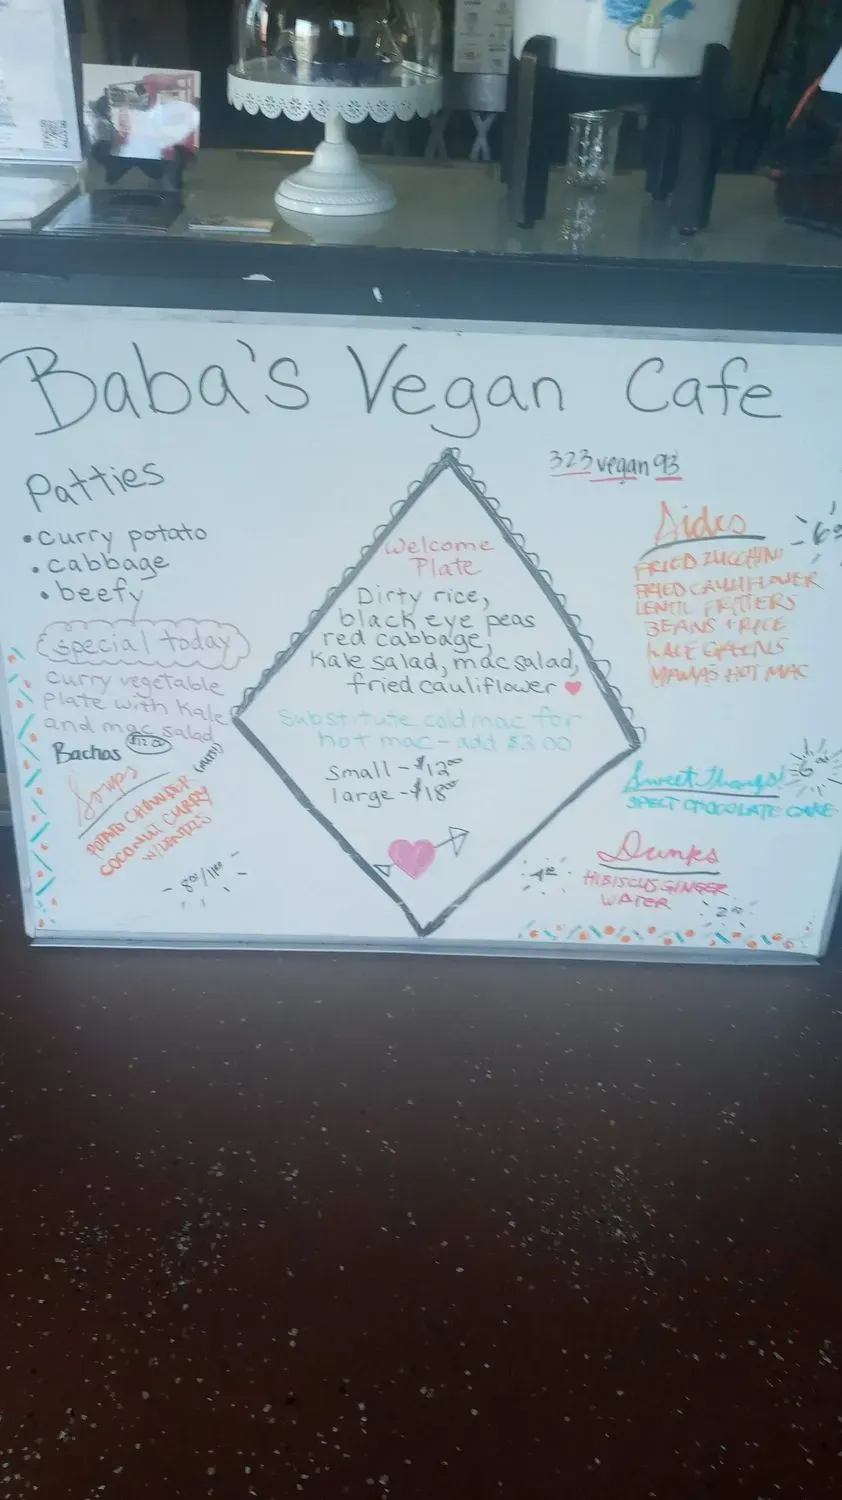 Baba's Vegan Cafe
323 vegan 93
Patties
• curry potato
• cabbage
• beefy
special today
curry vegetable
plate with kale
and mac salad
Bachas $12.00
Soups
POTATO CHOWDER
COCONUT CURRY
W/LENTILS
8⁰⁰/11⁰⁰
Welcome
Plate
Dirty rice,
black eye peas
red cabbage,
Kale salad, mac salad,
fried cauliflower
Substitute cold mac for
hot mac - add $3.00
small - $12⁰⁰
large - $18⁰⁰
Sides
FRIED ZUCCHINI
FRIED CAULIFLOWER
LENTIL FRITTERS
BEANS + RICE
KALE GREENS
MAMAS HOT MAC
Sweet Thangs! 6⁰⁰
SPELT CHOCOLATE CAKE
Drinks
HIBISCUS GINGER
4⁰⁰
WATER
2⁰⁰